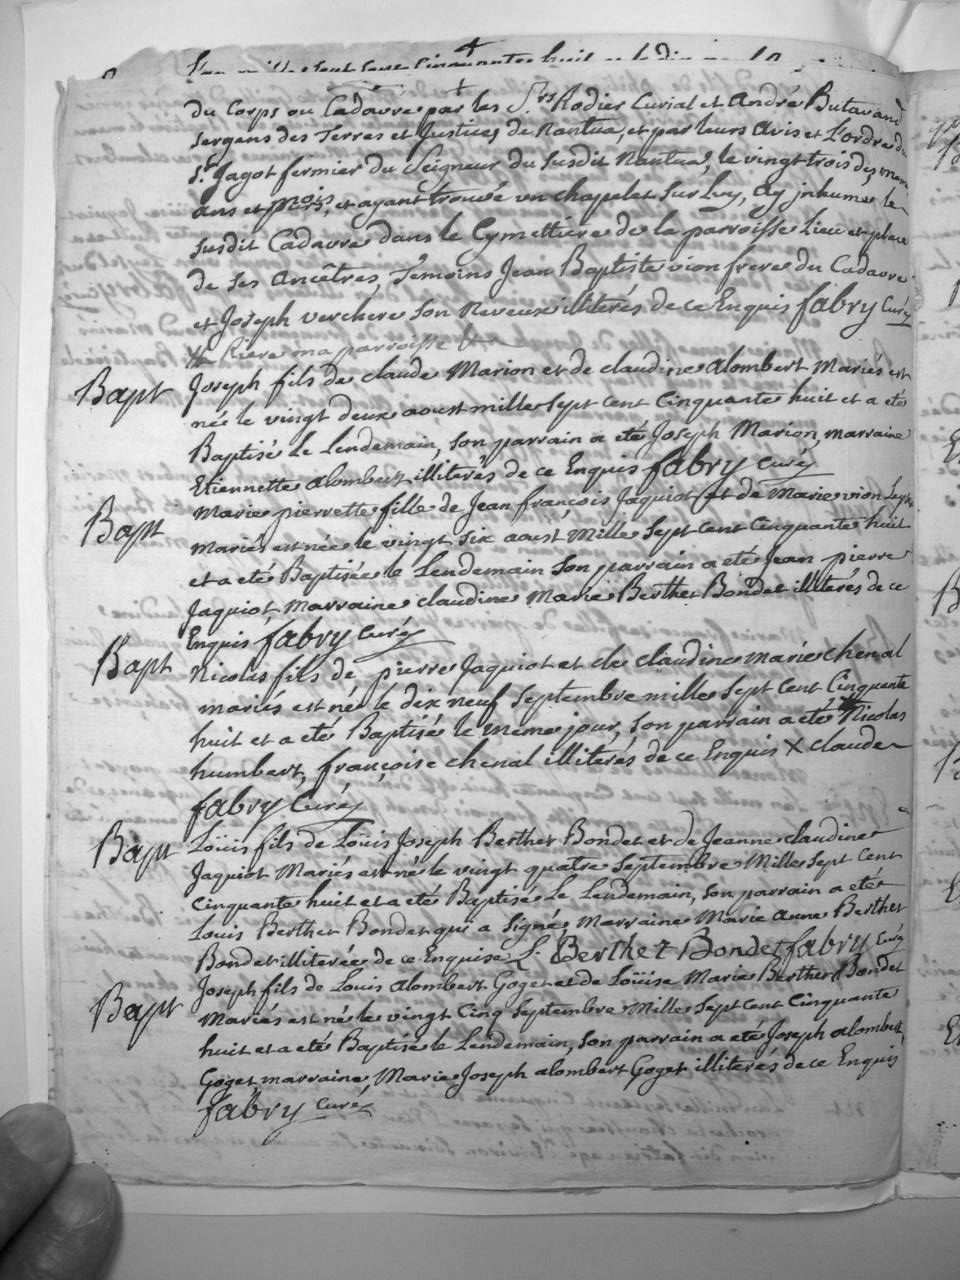 L'an mille sept cent cinquante huit et le dix
du Corps ou Cadavre par les S.rs Rodier Curial et André Butavand
sergans des Terres et Justices de Nantua, et par leurs avis et L'ordre du
S.r Jagot fermier du Seigneur du susdit Nantua, le vingt trois des meme
ans et mois, et ayant trouvé un chapelet sur Luy, ay inhumé le
susdit Cadavre dans le Cymettiere de la parroisse Lieu et place
de ses Ancêtres, Témoins Jean Baptiste vion frere du Cadavre
et Joseph verchere son Neveux illiterés de ce Enquis fabry Curé
ma parroisse
Bapt Joseph fils de claude Marion et de claudine alombert Mariés est
né le vingt deux aoust mille sept cent Cinquante huit et a eté
Baptisé Le Lendemain, son parrain a eté Joseph Marion, marraine
Etiennette alombert illiterés de ce Enquis fabry Curé
Bapt Marie pierrette fille de Jean françois Jaquiot et de Marie vion
Mariés est née le vingt six aoust Mille sept Cent Cinquante huit
et a eté Baptisée le Lendemain son parrain a eté Jean pierre
Jaquiot, marraine claudine Marie Berthet Bondet illiterés de ce
Enquis fabry Curé
Bapt Nicolas fils de pierre Jaquiot et de claudine marie chenal
mariés est né le dix neuf septembre mille sept cent Cinquante
huit et a eté Baptisé le meme jour, son parrain a eté Nicolas
humbert, françoise chenal illiterés de ce Enquis X claude
fabry Curé
Bapt Loüis fils de Loüis Joseph Berthet Bondet et de Jeanne claudine
Jaquiot Mariés est né le vingt quatre septembre Mille sept Cent
Cinquante huit et a eté Baptisé Le Lendemain, son parrain a eté
Louis Berthet Bondet qui a signé Marraine Marie anne Berthet
Bondet illiterée de ce Enquise L. Berthet Bondet fabry Curé
Bapt Joseph fils de Louis alombert Goget et de Loüise Marie Berthet Bondet
Mariés est né le vingt Cinq septembre Mille sept Cent Cinquante
huit et a eté Baptisé le Lendemain, son parrain a eté Joseph alombert
Goget marraine, Marie Joseph alombert Goget illiterés de ce Enquis
fabry Curé